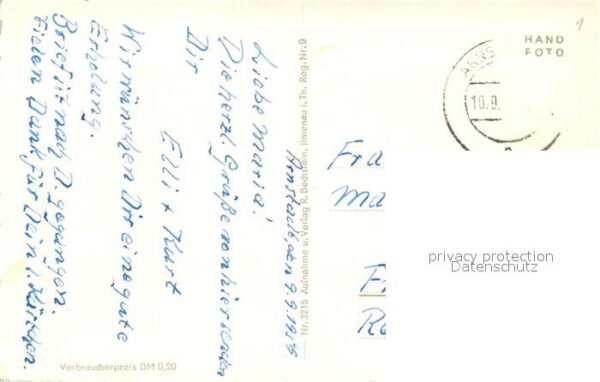 Arnstadt, den 9.9.1958
Liebe Maria!
Die herzl. Grüße von hier senden
Dir
Elli + Kurt
Wir wünschen Dir eine gute
Erholung.
Brief ist nach D. gegangen.
Vielen Dank für Dein l. Kärtchen.
Verbraucherpreis DM 0,20
Nr. 3215 Aufnahme u. Verlag R. Bechstein, Jlmenau i. Th. Reg. Nr. 9
HAND
FOTO
1
ARNS
10.9.
Fra
Ma
privacy protection
Datenschutz